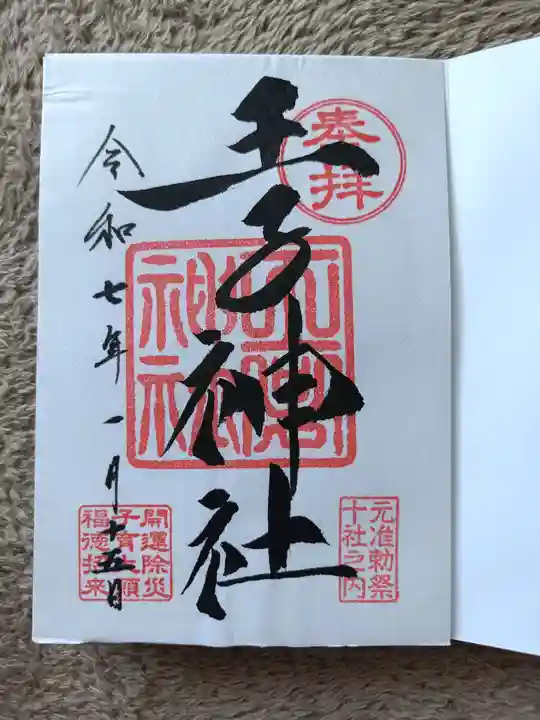 奉拝
王子神社
元准勅祭
十社之内
令和七年一月十五日
開運除災
福徳招来